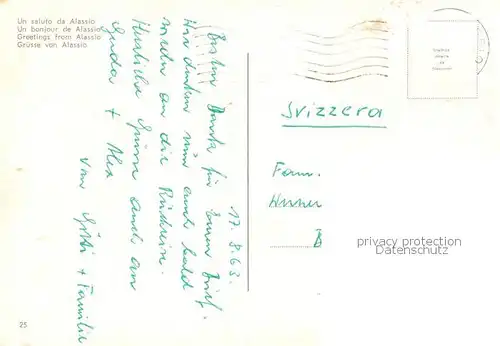 Un saluto da Alassio
Un bonjour de Alassio
Greetings from Alassio
Grüsse von Alassio
17.8.63.
Besten Dank für Euren Brief.
Wir denken nun auch bald
wieder an die Rückreise.
Herzliche Grüsse auch an
Guido + Alex
von Götti + Familie
Svizzera
Fam.
privacy protection
Datenschutz
25